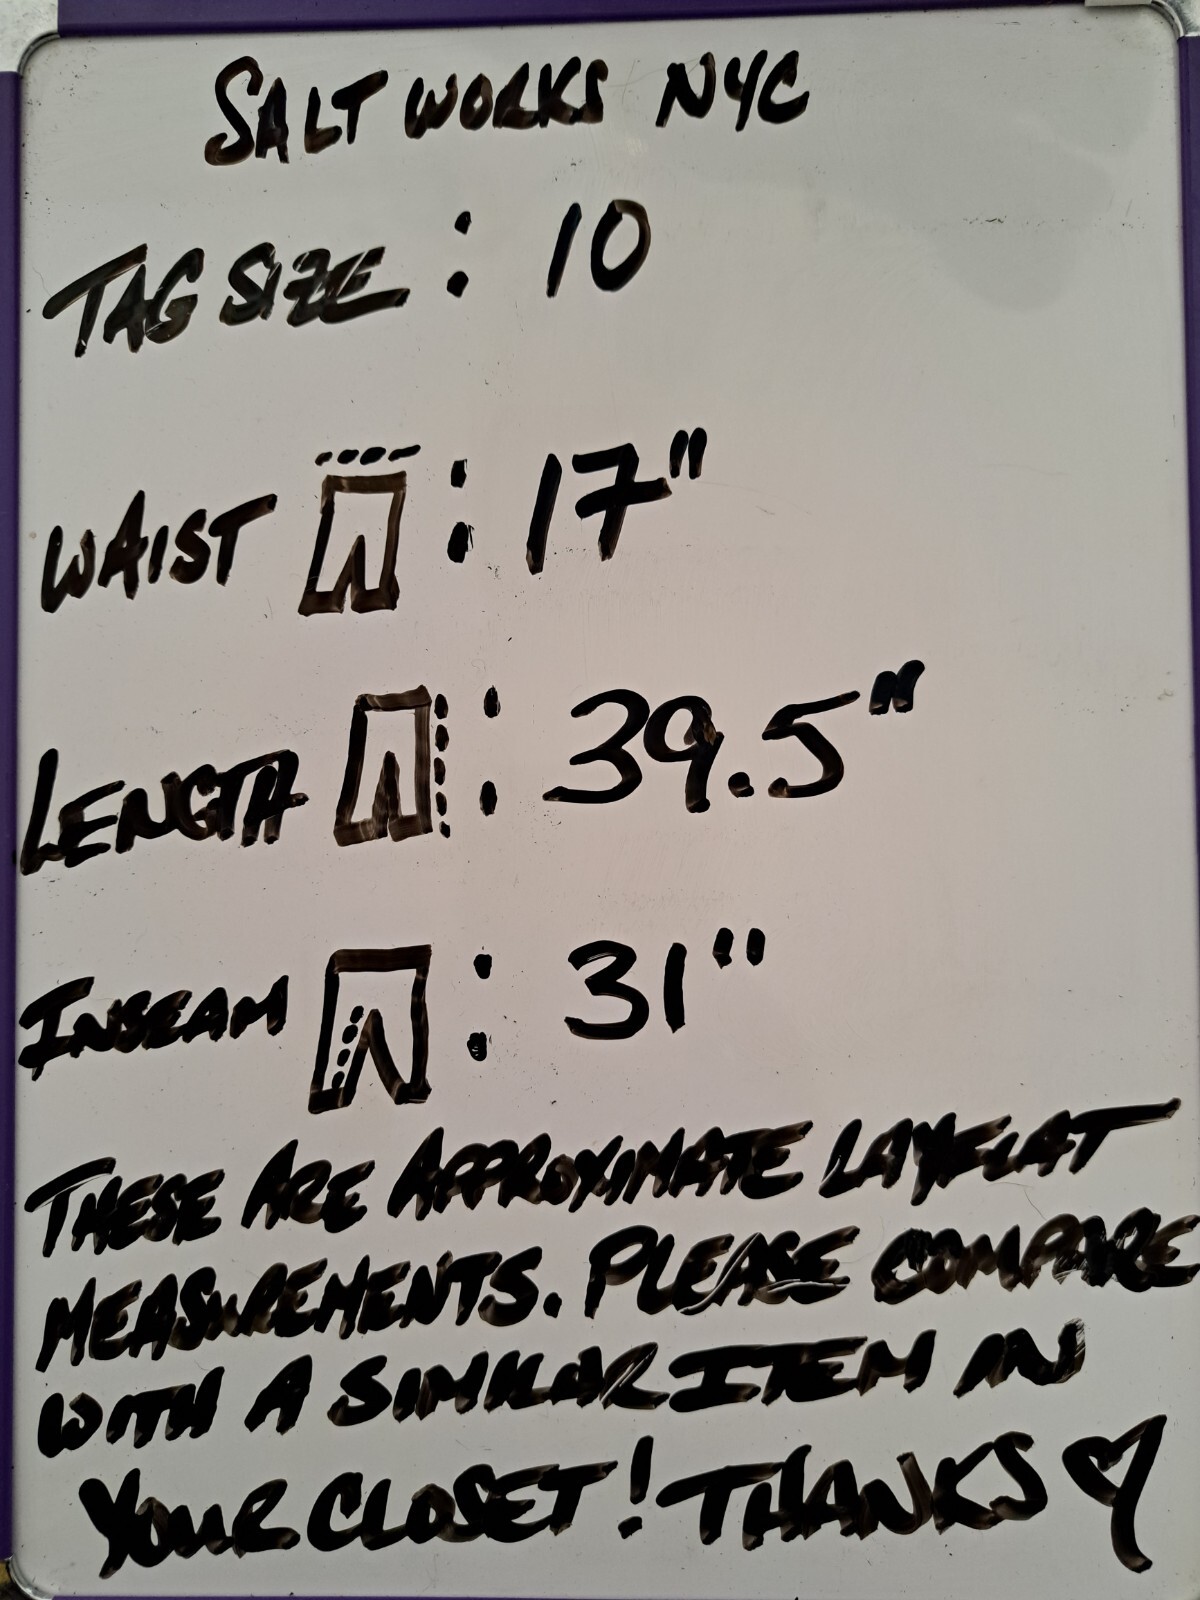 SALT WORKS NYC
TAG SIZE : 10
WAIST : 17"
LENGTH : 39.5"
INSEAM : 31"
THESE ARE APPROXIMATE LAYFLAT
MEASUREMENTS. PLEASE COMPARE
WITH A SIMILAR ITEM IN
YOUR CLOSET! THANKS ♡